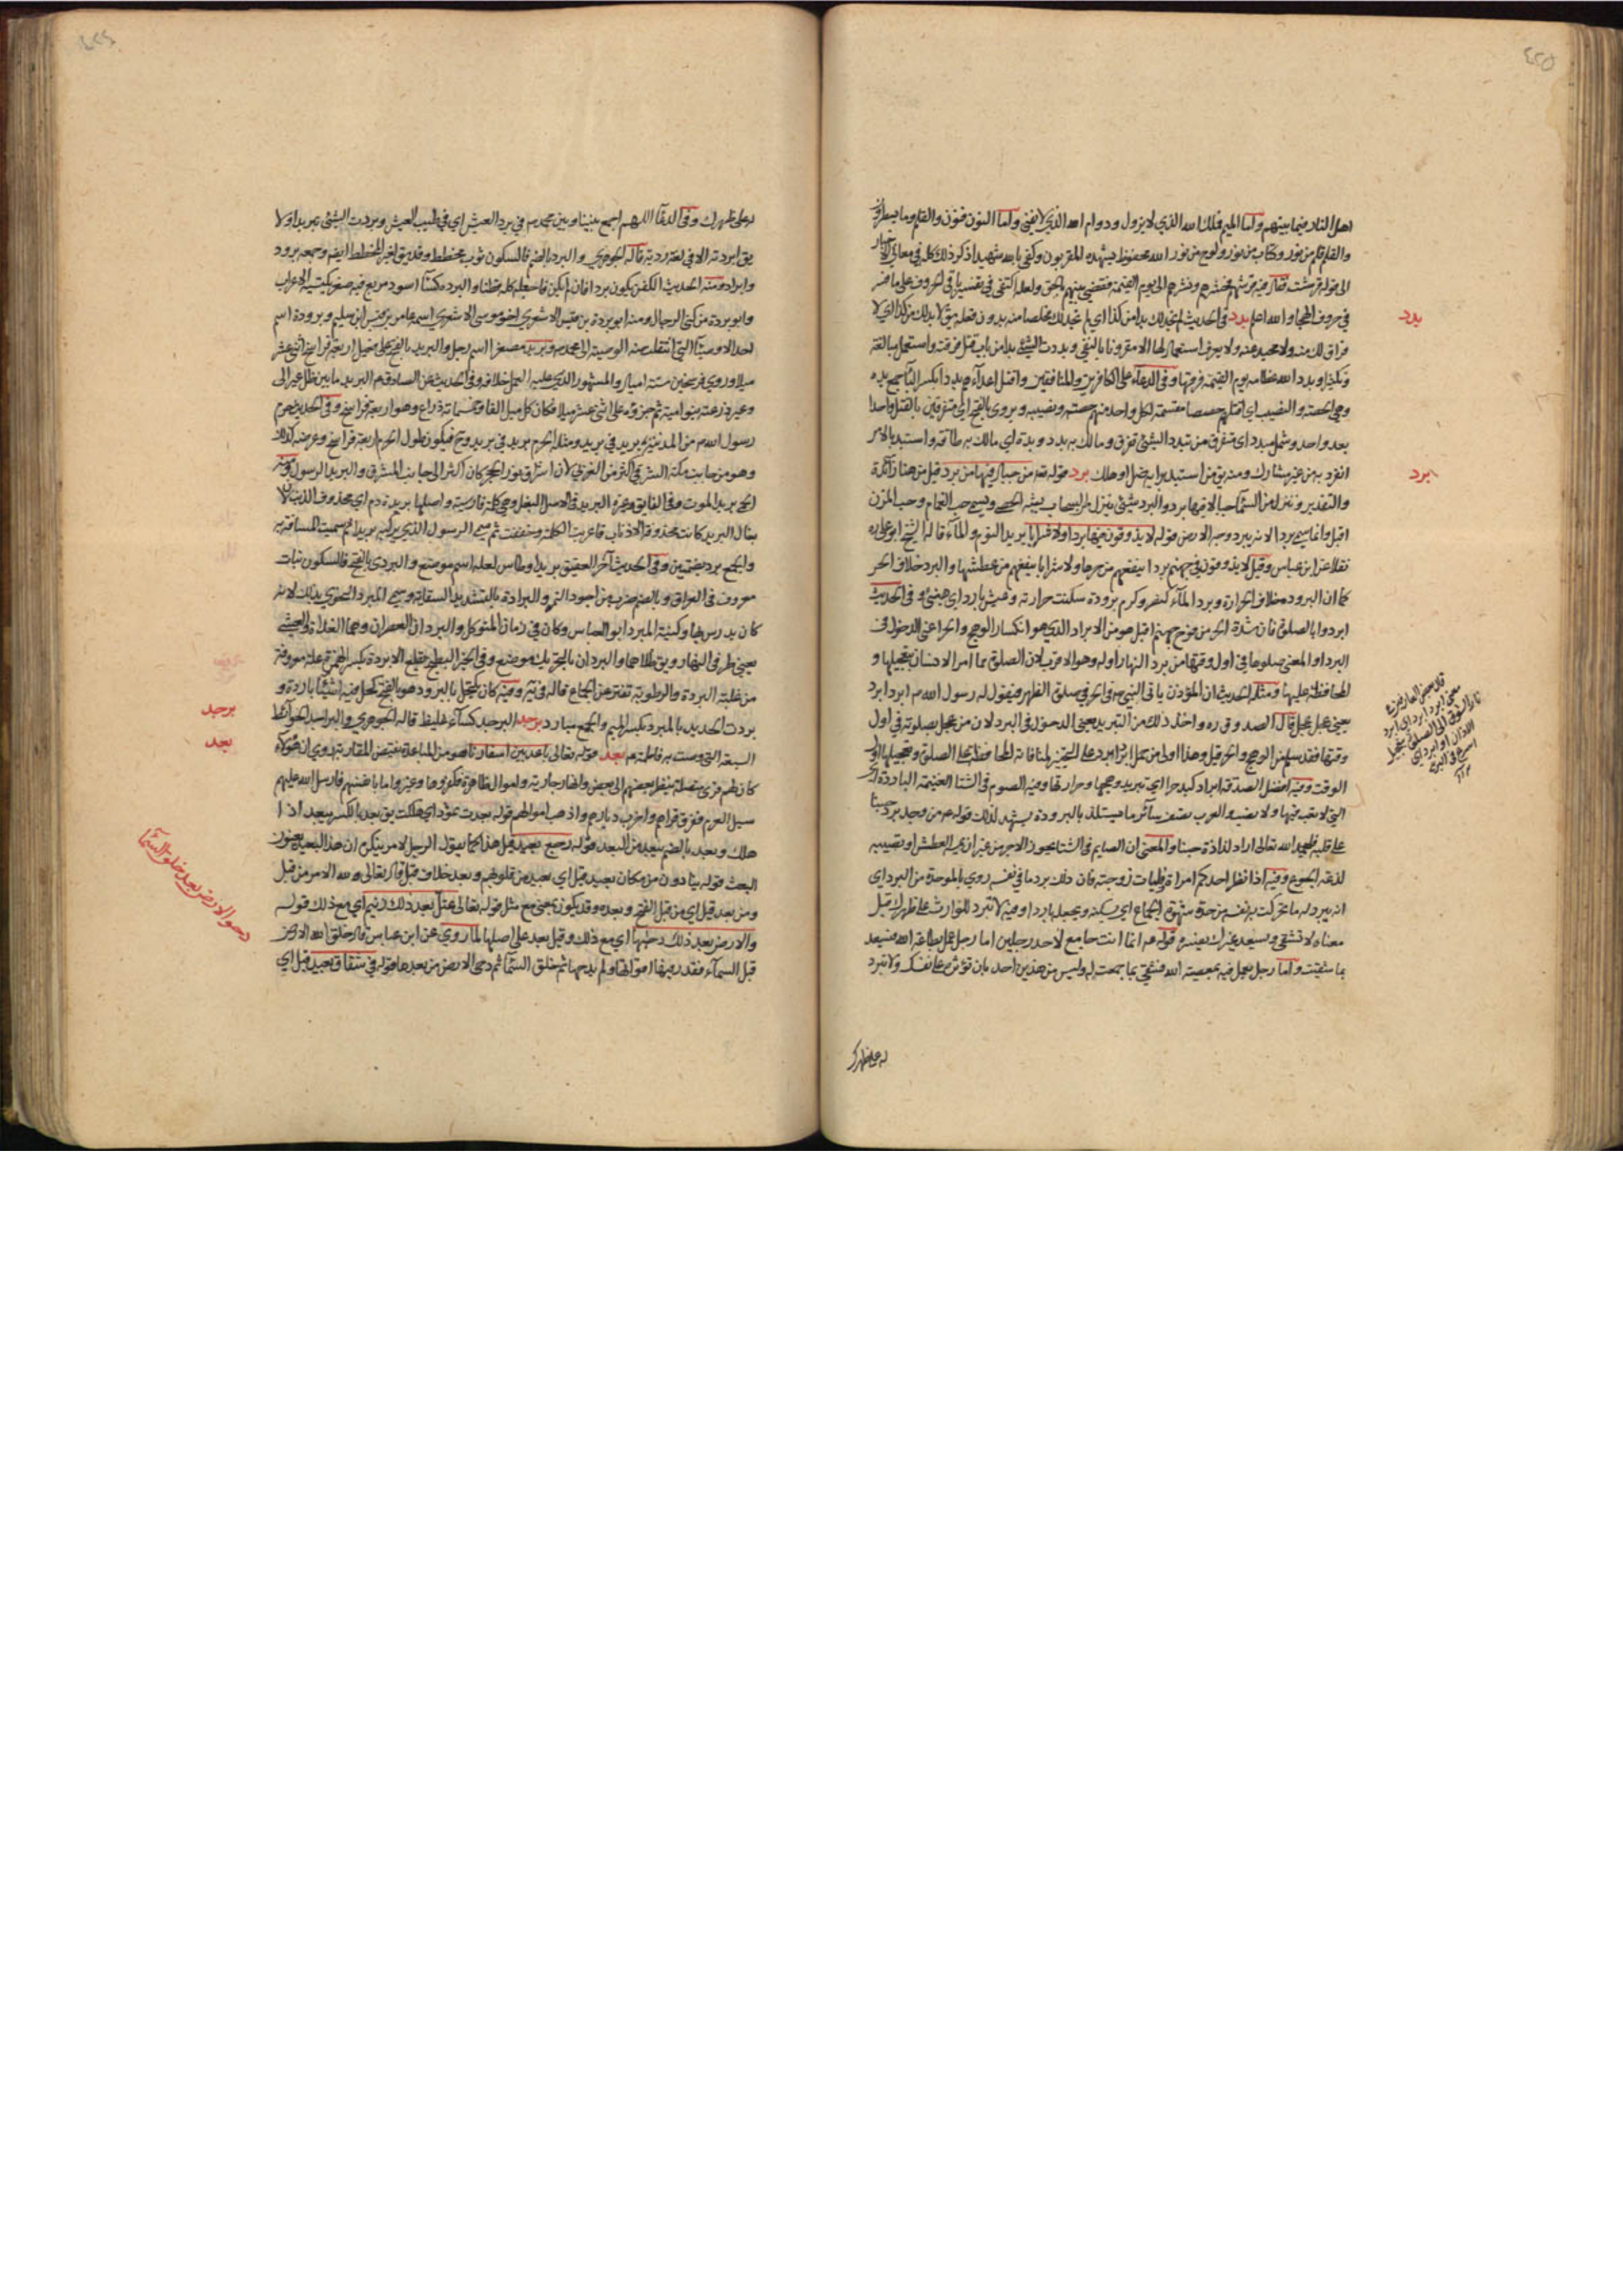 ٤٢٥
اهل النار فيما بينهم واما الميم فملك الله الذي لا يزول ودوام الله الذي لا يفنى واما النون فنون والقلم وما يسطرون
والقلم قلم من نور وكتاب من نور ولوح من نور الله محفوظ يشهده المقربون وكفى بالله شهيدا ذكر ذلك كله في معاني الاخبار
في حروف الهجاء والله اعلم بدد في الحديث لم نجد لك بدا من كذا اي لم نجد لك مخلصا منه بدون فعله يق لا بد لك من كذا اي لا
فراق لك منه ولا محيد عنه ولا يعرف استعمالها الا مقرونا بالنفي وبددت الشيء بدا من باب قتل فرقته واستعمل مبالغة
وتكثيرا وبدد الله عظامه يوم القيمة فرقها وفي الدعاء على الكافرين والمنافقين واقتل اعداءهم بددا بكسر الباء جمع بده
وهي الحصة والنصيب اي اقتلهم حصصا مقسمة لكل واحد منهم حصته ونصيبه ويروى بالفتح اي متفرقين بالقتل واحدا
بعد واحد وشمل مبدد اي متفرق من تبدد الشيء تفرق وما لك به بدد وبدة اي ما لك به طاقة واستبد بالامر
انفرد به من غير مشارك ومنه يق من استبد برايه ضل او هلك برد قوله تع من جبال فيها من برد قيل من هنا زائدة
والتقدير وننزل من السماء جبالا فيها برد والبرد شيء ينزل من السحاب يشبه الحصى ويسمى حب الغمام وحب المزن
قيل وانما سمي بردا لانه يبرد وجه الارض قوله لا يذوقون فيها بردا ولا شرابا يريد النوم والماء قاله الشيخ ابو علي ره
نقلا عن ابن عباس وقيل لا يذوقون في جهنم بردا ينفعهم من حرها ولا شرابا ينفعهم من عطشها والبرد خلاف الحر
كما ان البرودة خلاف الحرارة وبرد الماء كنصر وكرم برودة سكنت حرارته وعيش بارد اي هنيء وفي الحديث
ابردوا بالصلوة فان شدة الحر من فوح جهنم قيل هو من الابراد الذي هو انكسار الوهج والحر اعني الدخول في
البرد والمعنى صلوها في اول وقتها من برد النهار اوله وهو الاقرب لان الصلوة مما امر الانسان بتعجيلها و
المحافظة عليها ومثله الحديث ان المؤذن ياتي النبي ص في الحر في صلوة الظهر فيقول له رسول الله ص ابرد ابرد
يعني عجل عجل قال الصدوق ره واخذ ذلك من التبريد يعني الدخول في البرد لان من عجل بصلوته في اول
وقتها فقد سلم من الوهج والحر قيل وهذا اولى من حمل ابرد ابرد على التخيير لمنافاته المحافظة على الصلوة وتعجيلها اول
الوقت وفيه افضل الصدقة ابراد كبد حرا اي تبريد وهجها وحرارتها وفيه الصوم في الشتاء الغنيمة الباردة اي
التي لا تعب فيها ولا نصب والعرب تصف سائر ما يستلذ بالبرودة يشهد لذلك قوله ص من وجد برد حبنا
على قلبه فليحمد الله تعالى اراد لذاذة حبنا والمعنى ان الصايم في الشتاء يحوز الاجر من غير ان يمسه العطش او تصيبه
لذعة الجوع وفيه اذا نظر احدكم امراة فليات زوجته فان ذلك برد ما في نفسه روي بالموحدة من البرد اي
انه يبرد له ما تحركت به نفسه من حدة شهوة الجماع اي يسكنه ويجعله باردا وفيه لا تبرد للوارث على ظهرك قيل
معناه لا تشقى ويسعد غيرك بعينه قوله ع انما انت جامع لاحد رجلين اما رجل عمل بطاعة الله فيسعد
بما شقيت واما رجل يعمل فيه بمعصية الله فشقي بما جمعت له وليس من هذين احد بان تؤثره على نفسك ولا تبرد
له على ظهرك
بدد
برد
له على ظهرك وفي الدعاء اللهم اجمع بيننا وبين محمد ص في برد العيش اي في طيب العيش وبردت الشيء تبريدا ولا
يق ابردته الا في لغة ردية قاله الجوهري والبرد بالضم فالسكون ثوب مخطط وقد يق لغير المخطط ايضا وجمعه برود
وابراد ومنه الحديث الكفن يكون بردا فان لم يكن فاجعله كله قطنا والبردة كساء اسود مربع فيه صغر تلبسه الاعراب
وابو بردة من كنى الرجال ومنه ابو بردة بن قيس الاشعري اخو موسى الاشعري اسمه عامر بن قيس ابن سليم وبرودة اسم
احد الاوصياء التي انتقلت منه الوصية الى محمد ص وبريد مصغرا اسم رجل والبريد بالفتح على فعيل اربعة فراسخ اثنى عشر
ميلا وروي فرسخين ستة اميال والمشهور الذي عليه العمل خلافه وفي الحديث عن الصادق ع البريد ما بين ظل عير الى
وعير ذرعته بنو امية ثم جزؤه على اثنى عشر ميلا فكان كل ميل الفا وخمسمائة ذراع وهو اربعة فراسخ وفي الحديث حرم
رسول الله ص من المدينة بريد في بريد ومثله الحرم بريد في بريد وح فيكون طول الحرم اربعة فراسخ وعرضه كذلك
الحمى بريد الموت وفي الفايق وغيره البريد في الاصل البغل وهي كلمة فارسية واصلها بريده دم اي محذوف الذنب لان
بغال البريد كانت محذوفة الاذناب فاعربت الكلمة وخففت ثم سمي الرسول الذي يركبه بريدا ثم سميت المسافة به
والجمع برد بضمتين وفي حديث آخر العقيق بريد اوطاس لعله اسم موضع والبردي بالفتح فالسكون نبات
معروف في العراق وبالضم ضرب من اجود التمر والبرادة بالتشديد السقاية وسمي المبرد النحوي بذلك لانه
كان يدرس بها وكنيته المبرد ابو العباس وكان في زمان المتوكل والبردان العصران وهما الغداة والعشي
يعني طرفي النهار ويق ظلاهما والبردان بالتحريك موضع وفي الخبر البطيخ يقلع الابردة بكسر الهمزة علة معروفة
من غلبة البردة والرطوبة تفتر عن الجماع قاله في يه وفيه كان يكتحل بالبرود هو بالفتح كحل فيه اشياء باردة و
بردت الحديد بالمبرد بكسر الميم والجمع مبارد برجد البرجد كساء غليظ قاله الجوهري والبراجد الحوائط
السبعة التي وصت به فاطمة ع بعد قوله تعالى باعد بين اسفارنا هو من المباعدة نقيض المقاربة روي ان هؤلاء
كان لهم قرى متصلة ينظر بعضهم الى بعض وانهار جارية واموال ظاهرة فكفروها وغيروا ما بانفسهم فارسل الله عليهم
سيل العرم ففرق قراهم واخرب ديارهم واذهب اموالهم قوله بعدت ثمود اي هلكت يق بعد بالكسر يبعد اذا
هلك وبعد بالضم يبعد من البعد قوله رجع بعيد قيل هذا كما يقول الرجل لامر ينكره ان هذا لبعيد يعنون
البعث قوله ينادون من مكان بعيد قيل اي بعيد من قلوبهم وبعد خلاف قبل قال تعالى ولله الامر من قبل
ومن بعد قيل اي من قبل الفتح وبعده وقد يكون بمعنى مع مثل قوله تعالى عتل بعد ذلك زنيم اي مع ذلك قوله
والارض بعد ذلك دحيها اي مع ذلك وقيل بعد على اصلها لما روي عن ابن عباس قال خلق الله الارض
قبل السماء فقدر فيها اقواتها ولم يدحها ثم خلق السماء ثم دحى الارض من بعدها قوله في شقاق بعيد قيل اي
برجد
بعد
دحو الارض بعد خلق السماء